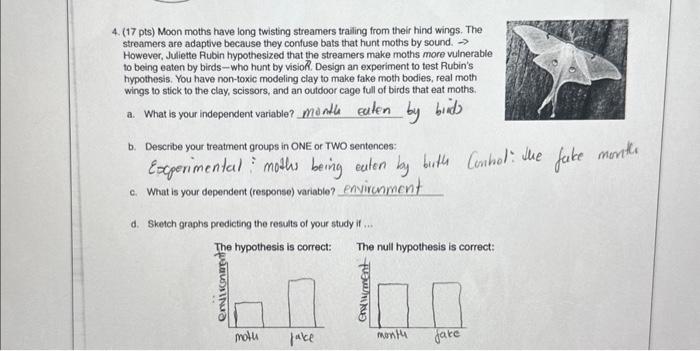 4. (17 pts) Moon moths have long twisting streamers trailing from their hind wings. The
streamers are adaptive because they confuse bats that hunt moths by sound. ->
However, Juliette Rubin hypothesized that the streamers make moths more vulnerable
to being eaten by birds—who hunt by vision. Design an experiment to test Rubin's
hypothesis. You have non-toxic modeling clay to make fake moth bodies, real moth
wings to stick to the clay, scissors, and an outdoor cage full of birds that eat moths.
a. What is your independent variable? month eaten by birds
b. Describe your treatment groups in ONE or TWO sentences:
Experimental: moths being eaten by birth Control: the fake month
c. What is your dependent (response) variable? environment
d. Sketch graphs predicting the results of your study if ...
The hypothesis is correct: The null hypothesis is correct:
environment
moth fake
month fake